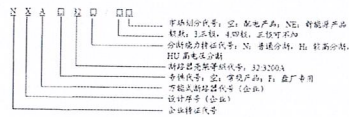 N X A □ □ □ □□
市场划分代号：空：配电产品；NE：新能源产品
极数：3.三极，4.四极，三极可不标
分断能力特征代号：N：普通分断，H：较高分断，
HU 高电压分断
断路器壳架等级代号：32.3200A
专供代号：空：常规产品；F：盘厂专用
万能式断路器代号（企业）
设计序号（企业）
企业特征代号